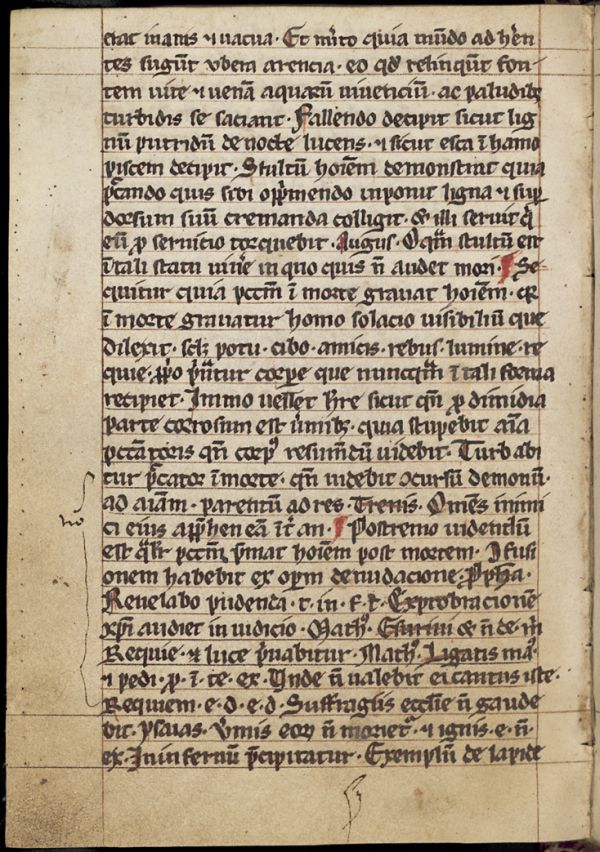 erat inanis ⁊ vacua · Et mͥto quia mūdo adhͤn
tes sugūt vbera arencia · eo qđ relinqūt fon
tem vite ⁊ venā aquarū viventiū · ac paludibꝫ
turbidis se saciant · Fallendo decipit sicut lig
nū putridū de nocte lucens · ⁊ sicut esca ī hamo
piscem decipit · Stultū hoīem demonstrat quia
p̄ccando quis sibi opp̄mendo inponit ligna ⁊ sup̄
dorsum suū cremanda colligit · & illi seruit q̄
eū ꝓ seruicio torquebit · Augus · O qm̄ stultū est
ī tali statu viūe in quo quis n̄ audet mori · Se
quitur quia pcctm̄ ī morte grauat hoīem · qꝛ
ī morte grauatur homo solacio visibiliū que
dilexit · sclꝫ potu · cibo · amicis · rebus · lumine · re
quie · ꝓp̄o p̄uatur corpore que nunqm̄ ī tali forma
recipiet · Immo vellet hr̄e sicut qn̄ ꝓ dimidia
parte corrosum est v̄mibꝫ · quia stupebit aīa
pcctātoris qn̄ corpꝰ resumēdū videbit · Turbabi
tur p̄cator ī morte · qn̄ videbit ↄcursū demonū ·
ad aīam · parentū ad res · Trenis · Om̄es inimi
ci eius app̄hen eā īt̄ an · Postremo videndū
est qͣlr̄ pcctm̄ p̄mat hoīem post mortem · Ifusi
onem habebit ex opm̄ denudacione · Ꝓpħa ·
Reuelabo pudenda · t · in · f · t · Exprobracionē
xp̄i audiet in iudicio · Mathꝰ · Esuriui & n̄ de · m̄
Requie · ⁊ luce p̄uabitur · Mathꝰ · Ligatis maꝰ ·
⁊ pedi · ꝓ · ī · te · ex · Vnde n̄ valebit ei cantus iste ·
Requiem · e · d · e · d · Suffragiis ecclīe n̄ gaude
bit · ysaias · v̄mis eoꝝ n̄ morietͬ · ⁊ ignis · e · n̄ ·
ex · In infernū p̄cipitatur · Exemplū de lapide